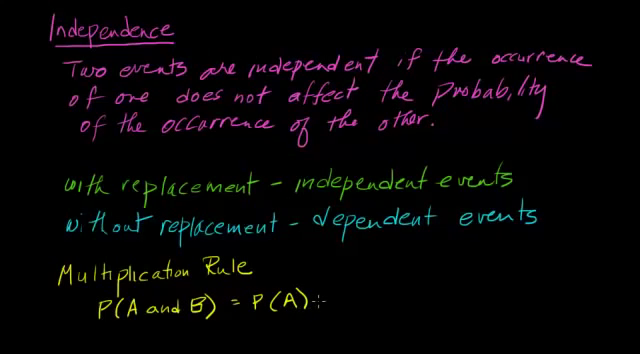 Independence
Two events are independent if the occurrence
of one does not affect the Probability
of the occurrence of the other.
with replacement - independent events
without replacement - dependent events
Multiplication Rule
P(A and B) = P(A) ÷